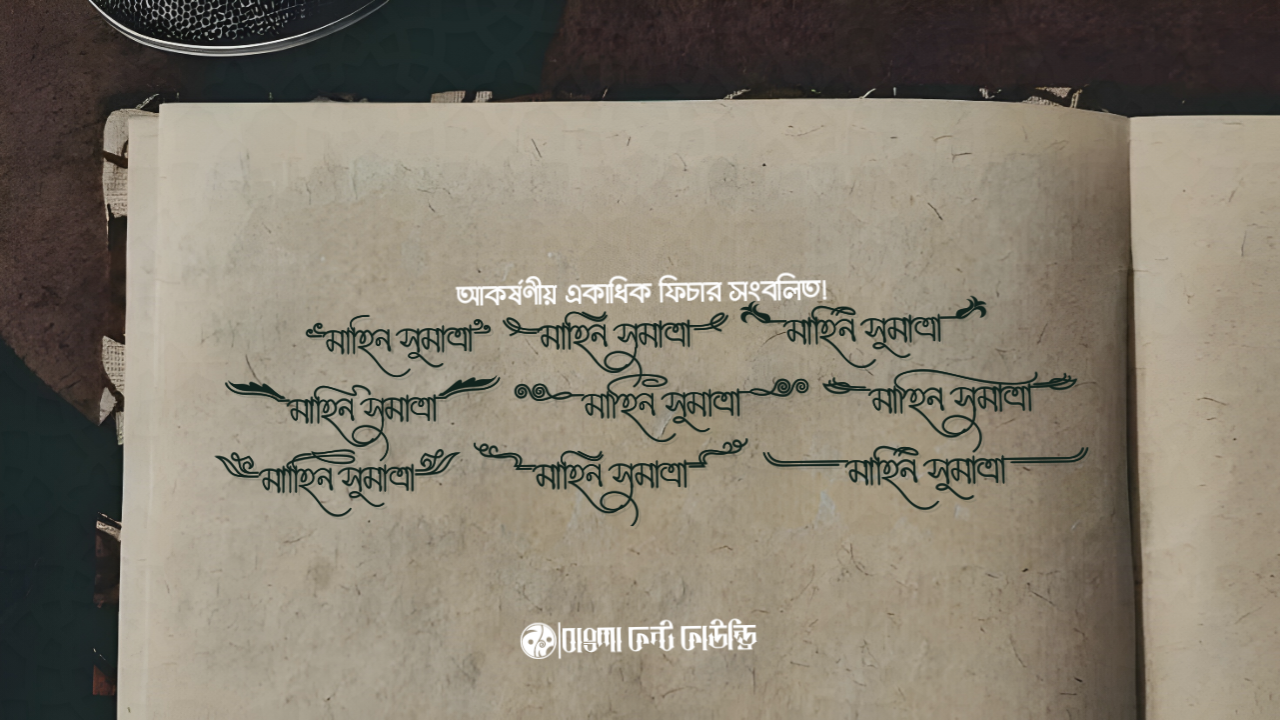 আকর্ষণীয় একাধিক ফিচার সংবলিত!
মাহিন সুমাত্রা মাহিন সুমাত্রা মাহিন সুমাত্রা
মাহিন সুমাত্রা মাহিন সুমাত্রা মাহিন সুমাত্রা
মাহিন সুমাত্রা মাহিন সুমাত্রা মাহিন সুমাত্রা
বাংলা ফন্ট ফাউন্ড্রি